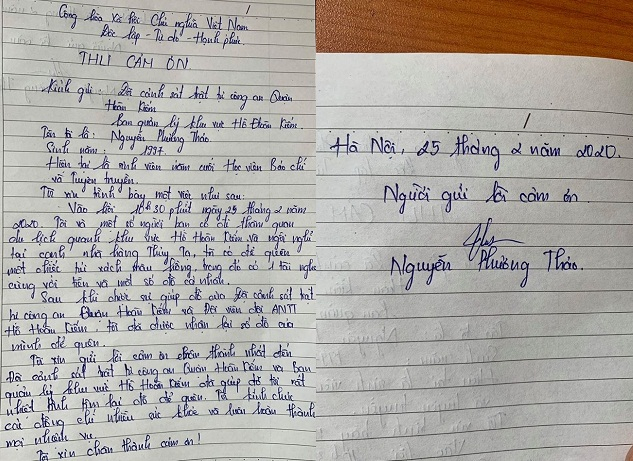 Cộng hòa Xã hội Chủ nghĩa Việt Nam
Độc lập - Tự do - Hạnh phúc.
THƯ CẢM ƠN
Kính gửi: Đội cảnh sát trật tự công an Quận
Hoàn Kiếm
ban quản lý khu vực Hồ Hoàn Kiếm.
Tên tôi là: Nguyễn Phương Thảo.
Sinh năm: 1997.
Hiện tại là sinh viên năm cuối Học viện Báo chí
và Tuyên truyền.
Tôi xin trình bày một việc như sau:
Vào hồi 16h30 phút ngày 25 tháng 2 năm
2020. Tôi và một số người bạn có đi thăm quan
du lịch quanh khu vực Hồ Hoàn Kiếm và ngồi nghỉ
tại cạnh nhà hàng Thủy Tạ, tôi có để quên
một chiếc túi xách màu hồng, trong đó có 1 tai nghe
cùng với tiền và một số đồ cá nhân.
Sau khi được sự giúp đỡ của Đội cảnh sát trật
tự công an Quận Hoàn Kiếm và Đội viên đội ANTT
Hồ Hoàn Kiếm tôi đã được nhận lại số đồ của
mình để quên.
Tôi xin gửi lời cảm ơn chân thành nhất đến
Đội cảnh sát trật tự công an Quận Hoàn Kiếm và Ban
quản lý khu vực Hồ Hoàn Kiếm đã giúp đỡ tôi rất
nhiệt tình tìm lại đồ để quên. Tôi kính chúc
các đồng chí nhiều sức khỏe và luôn hoàn thành
mọi nhiệm vụ.
Tôi xin chân thành cảm ơn!
Hà Nội, 25 tháng 2 năm 2020.
Người gửi lời cảm ơn
Nguyễn Phương Thảo.